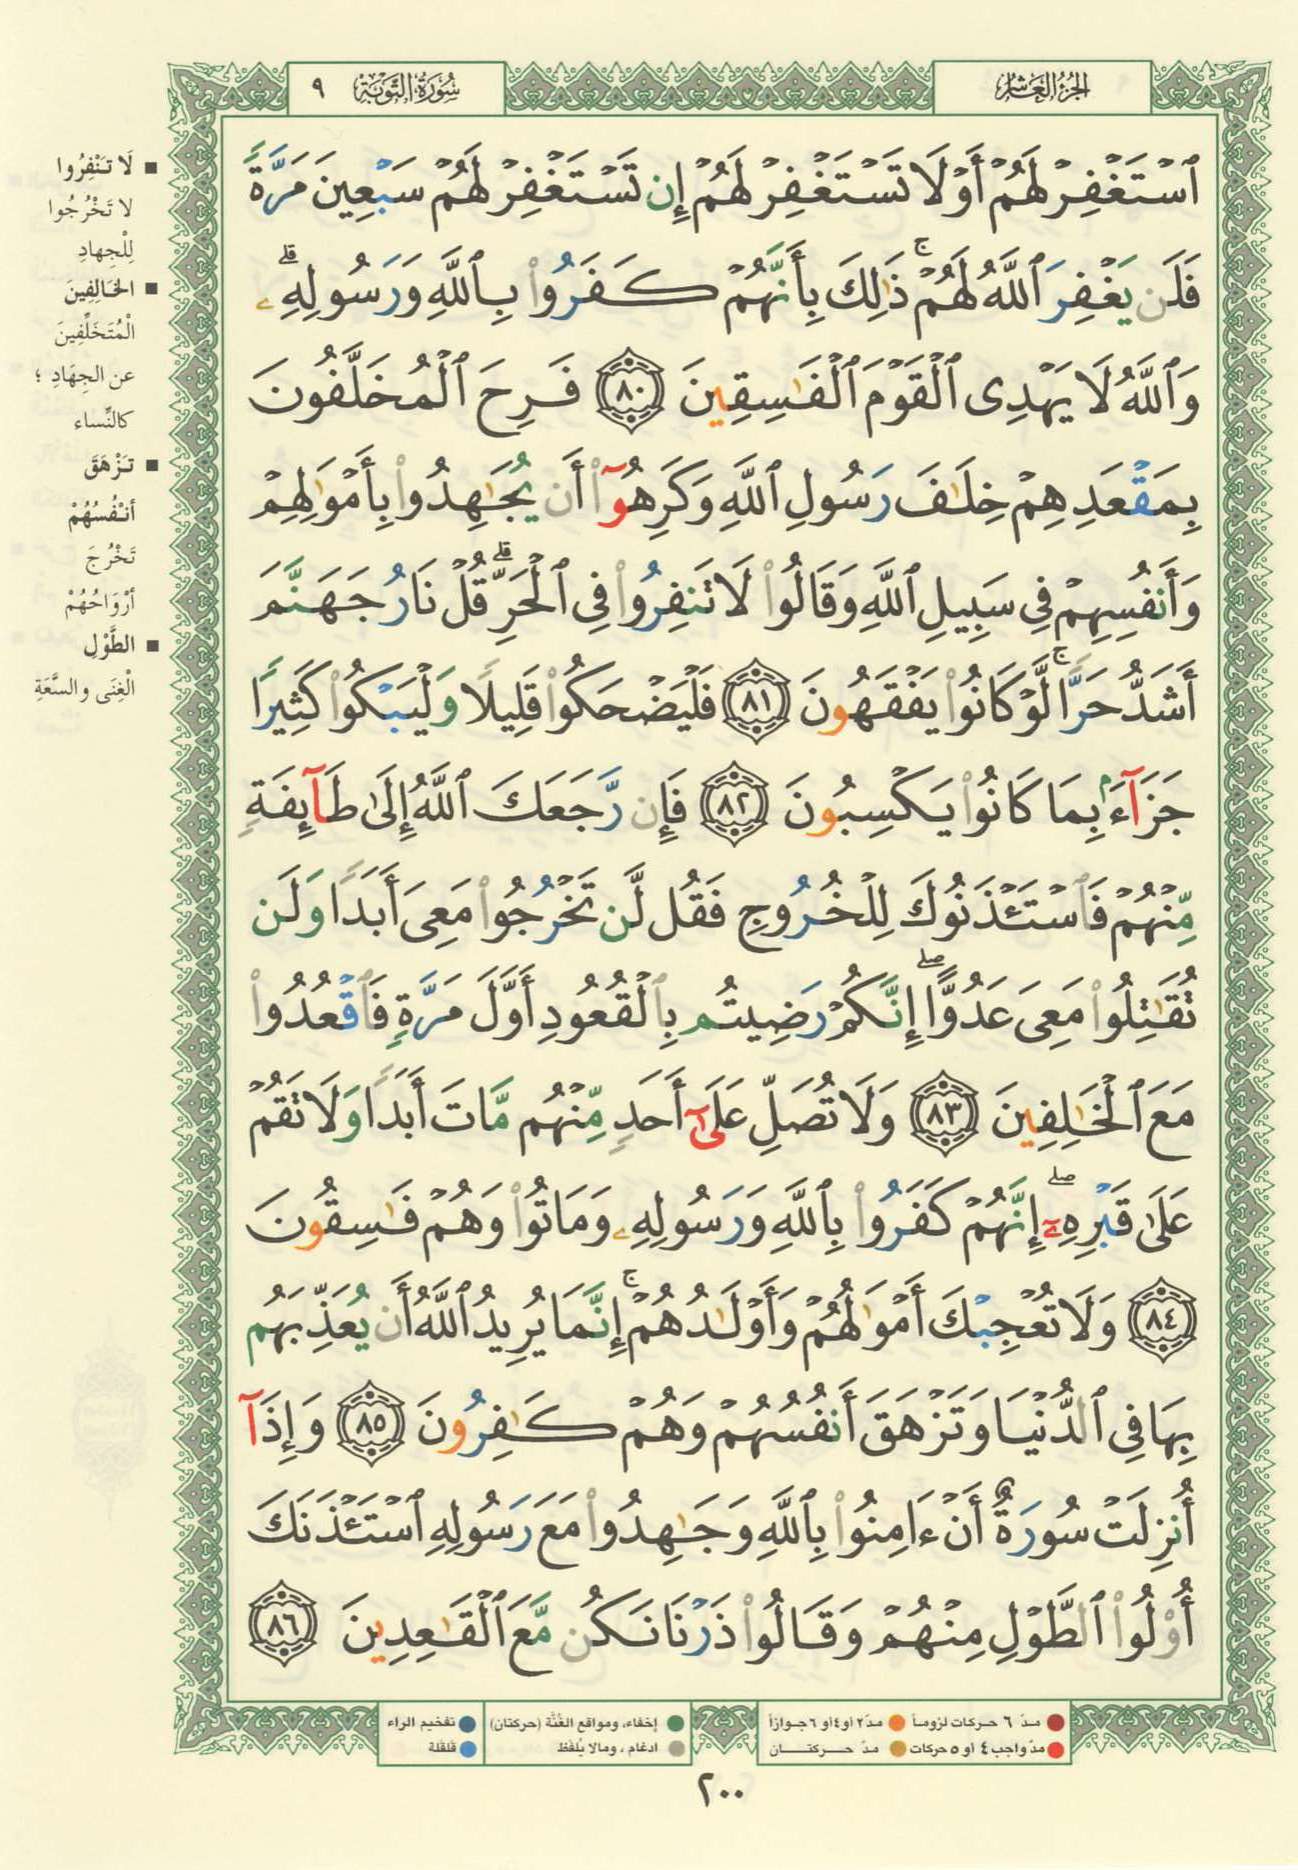 الجزء العاشر
سورة التوبة ٩
ٱسْتَغْفِرْ لَهُمْ أَوْ لَا تَسْتَغْفِرْ لَهُمْ إِن تَسْتَغْفِرْ لَهُمْ سَبْعِينَ مَرَّةً
فَلَن يَغْفِرَ ٱللَّهُ لَهُمْ ۚ ذَٰلِكَ بِأَنَّهُمْ كَفَرُوا۟ بِٱللَّهِ وَرَسُولِهِۦ ۗ
وَٱللَّهُ لَا يَهْدِى ٱلْقَوْمَ ٱلْفَـٰسِقِينَ ٨٠ فَرِحَ ٱلْمُخَلَّفُونَ
بِمَقْعَدِهِمْ خِلَـٰفَ رَسُولِ ٱللَّهِ وَكَرِهُوٓا۟ أَن يُجَـٰهِدُوا۟ بِأَمْوَٰلِهِمْ
وَأَنفُسِهِمْ فِى سَبِيلِ ٱللَّهِ وَقَالُوا۟ لَا تَنفِرُوا۟ فِى ٱلْحَرِّ ۗ قُلْ نَارُ جَهَنَّمَ
أَشَدُّ حَرًّا ۚ لَّوْ كَانُوا۟ يَفْقَهُونَ ٨١ فَلْيَضْحَكُوا۟ قَلِيلًا وَلْيَبْكُوا۟ كَثِيرًا
جَزَآءًۢ بِمَا كَانُوا۟ يَكْسِبُونَ ٨٢ فَإِن رَّجَعَكَ ٱللَّهُ إِلَىٰ طَآئِفَةٍ
مِّنْهُمْ فَٱسْتَـْٔذَنُوكَ لِلْخُرُوجِ فَقُل لَّن تَخْرُجُوا۟ مَعِىَ أَبَدًا وَلَن
تُقَـٰتِلُوا۟ مَعِىَ عَدُوًّا ۖ إِنَّكُمْ رَضِيتُم بِٱلْقُعُودِ أَوَّلَ مَرَّةٍ فَٱقْعُدُوا۟
مَعَ ٱلْخَـٰلِفِينَ ٨٣ وَلَا تُصَلِّ عَلَىٰٓ أَحَدٍ مِّنْهُم مَّاتَ أَبَدًا وَلَا تَقُمْ
عَلَىٰ قَبْرِهِۦٓ ۖ إِنَّهُمْ كَفَرُوا۟ بِٱللَّهِ وَرَسُولِهِۦ وَمَاتُوا۟ وَهُمْ فَـٰسِقُونَ
٨٤ وَلَا تُعْجِبْكَ أَمْوَٰلُهُمْ وَأَوْلَـٰدُهُمْ ۚ إِنَّمَا يُرِيدُ ٱللَّهُ أَن يُعَذِّبَهُم
بِهَا فِى ٱلدُّنْيَا وَتَزْهَقَ أَنفُسُهُمْ وَهُمْ كَـٰفِرُونَ ٨٥ وَإِذَآ
أُنزِلَتْ سُورَةٌ أَنْ ءَامِنُوا۟ بِٱللَّهِ وَجَـٰهِدُوا۟ مَعَ رَسُولِهِ ٱسْتَـْٔذَنَكَ
أُو۟لُوا۟ ٱلطَّوْلِ مِنْهُمْ وَقَالُوا۟ ذَرْنَا نَكُن مَّعَ ٱلْقَـٰعِدِينَ ٨٦
■ لَا تَنْفِرُوا
لا تَخْرُجُوا
لِلْجِهادِ
■ الخَالِفِينَ
الْمُتَخَلِّفِينَ
عن الجِهَادِ ؛
كالنِّساء
■ تَزْهَقَ
أَنْفُسُهُمْ
تَخْرُجَ
أَرْوَاحُهُمْ
■ الطَّوْلِ
الْغِنَى والسَّعَةِ
مدّ ٦ حركات لزوماً
مدّ ٢ أو ٤ أو ٦ جوازاً
مدّ واجب ٤ أو ٥ حركات
مدّ حركتان
إخفاء، ومواقع الغُنَّة (حركتان)
ادغام ، ومالا يُلفَظ
تفخيم الراء
قلقلة
٢٠٠